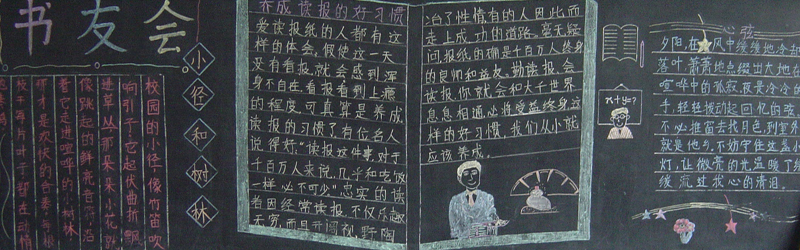 书友会
小径和树林
校园的小径,像竹笛,吹
响引子;它起伏曲折,飘
进草丛,那朵朵小花,
像跳起的鲜亮音符,沿
着它走进喧哗的小树林,
才是欢快的合奏,每根
枝干每片叶子都在动情
养成读报的好习惯
爱读报纸的人都有这
样的体会。假使这一天
没有看报,就会感到浑
身不自在,看报看到上瘾
的程度,可真算是养成
读报的习惯了。有位名人
说得好:“读报这件事,对于
千百万人来说,几乎和吃饭
一样必不可少”。忠实的读
者因经常读报,不仅乐趣
无穷,而且开阔视野,陶
冶了性情,有的人因此而
走上成功的道路。毫无疑
问,报纸的确是千百万人终身
的良师和益友。勤读报,会
读报,你就会和大千世界
息息相通,必将受益终身这
样的好习惯,我们从小就
应该养成。
x+y=?
心弦
夕阳,在风中缓缓地冷却
落叶萧萧地点缀出大地在
喧哗中的孤寂。夜是冷冷的
手,轻轻拨动起回忆的弦
不必推窗去找月色,到室外
就是他乡,不妨守住这盏小
灯,让微亮的光温暖了
缓流过我心的清泪。